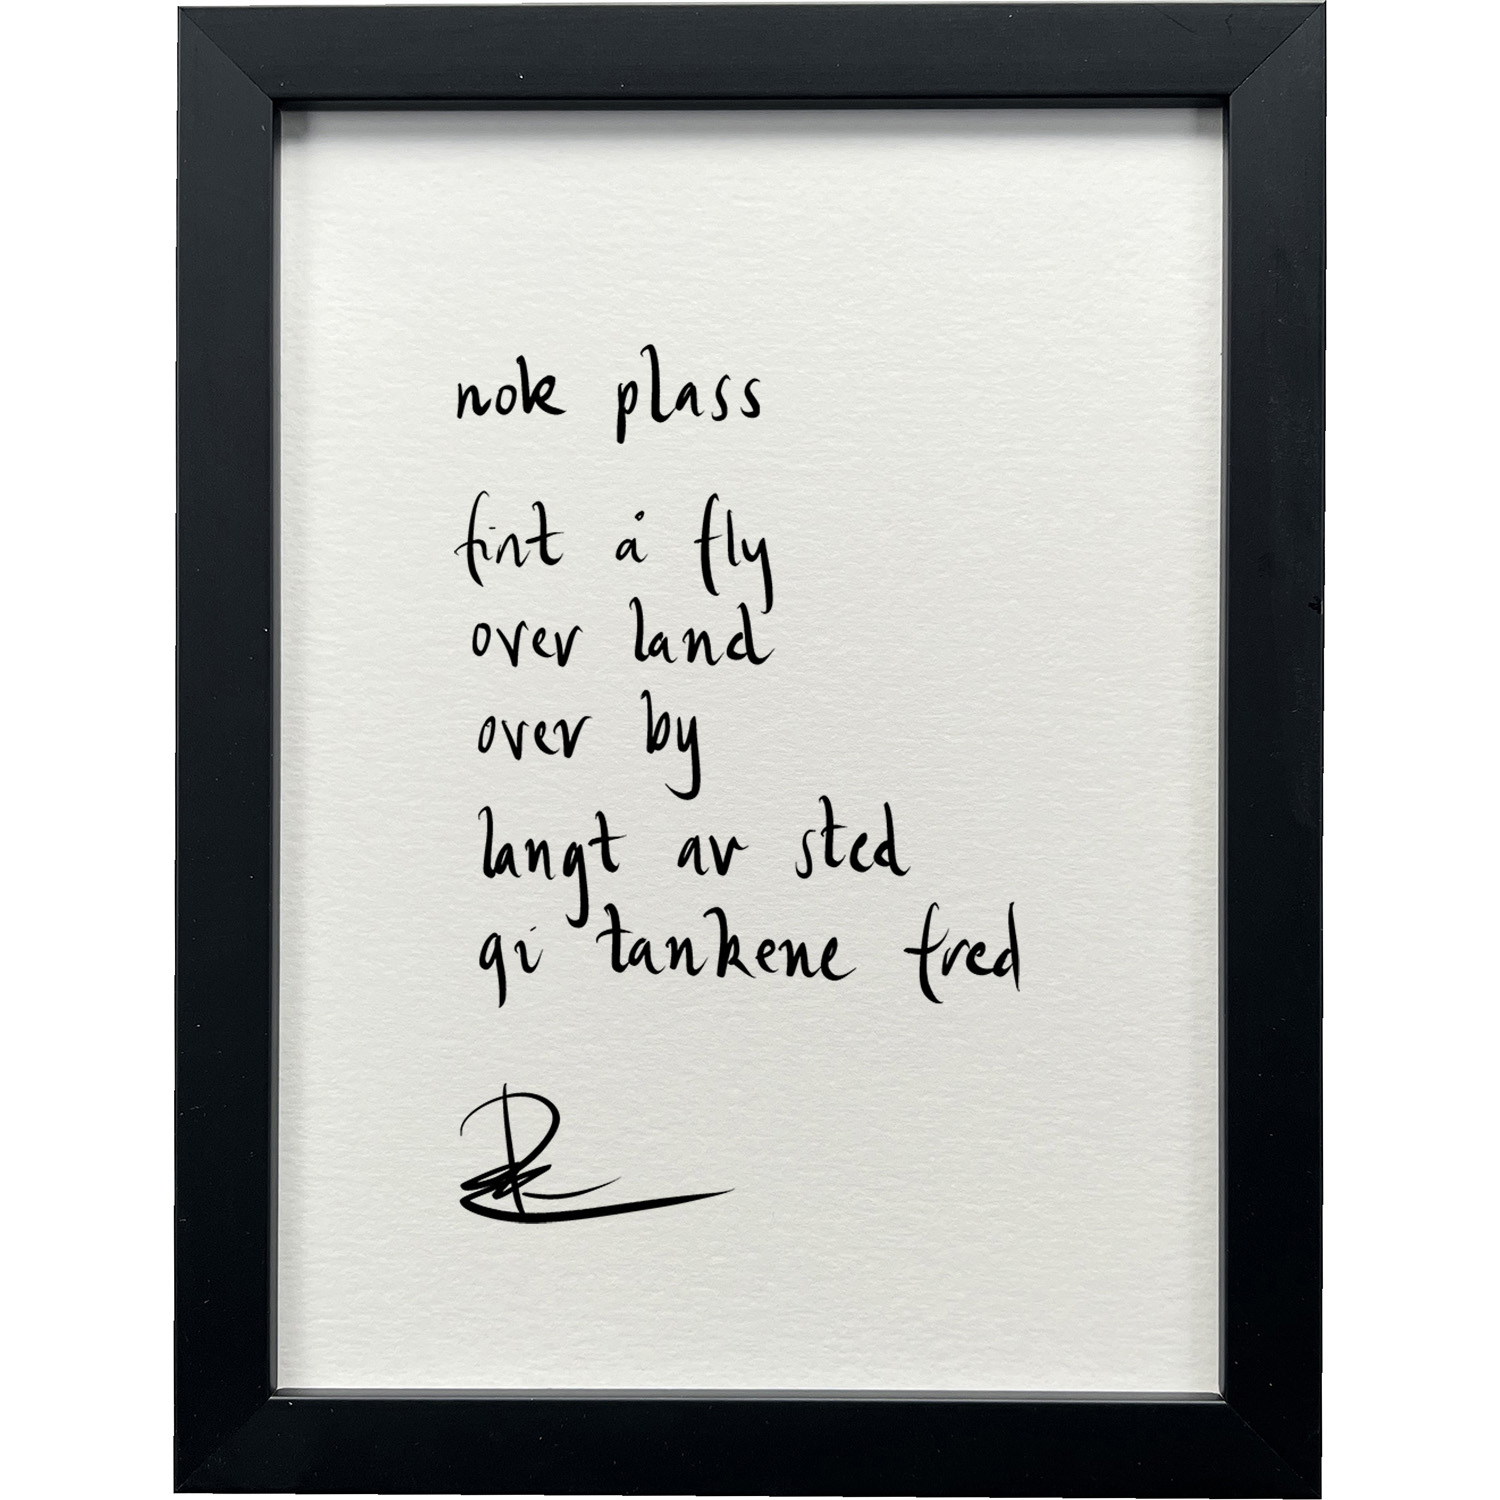 nok plass
fint å fly
over land
over by
langt av sted
gi tankene fred